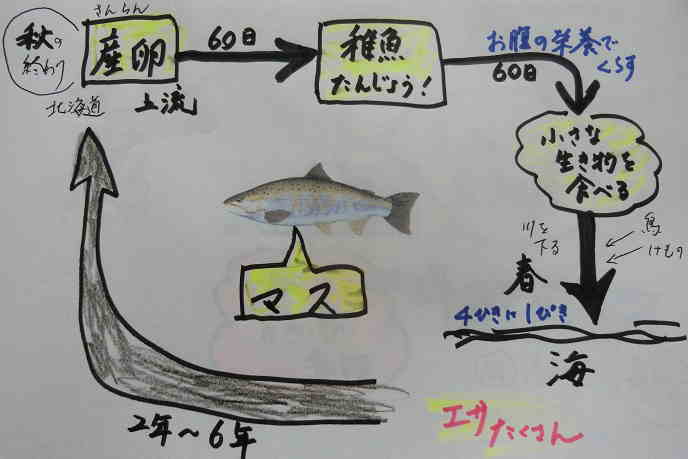 秋の
終わり
北海道
さんらん
産卵
上流
60日
稚魚
たんじょう!
お腹の栄養で
くらす
60日
小さな
生き物を
食べる
川を
下る
鳥
けもの
春
4ひきに1ぴき
海
エサ
たくさん
2年〜6年
マス